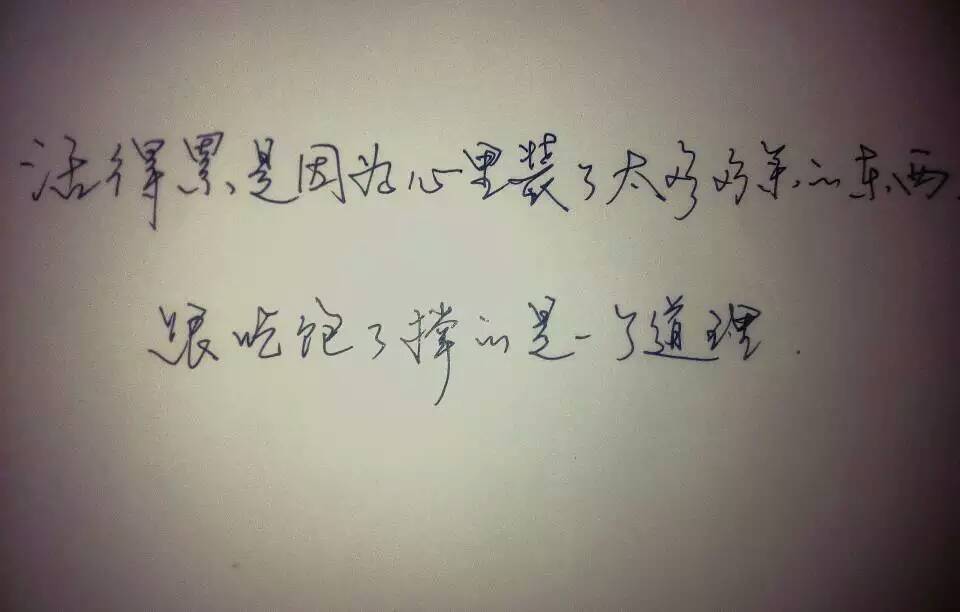 活得累,是因为心里装了太多多余的东西.
跟吃饱了撑的是一个道理.